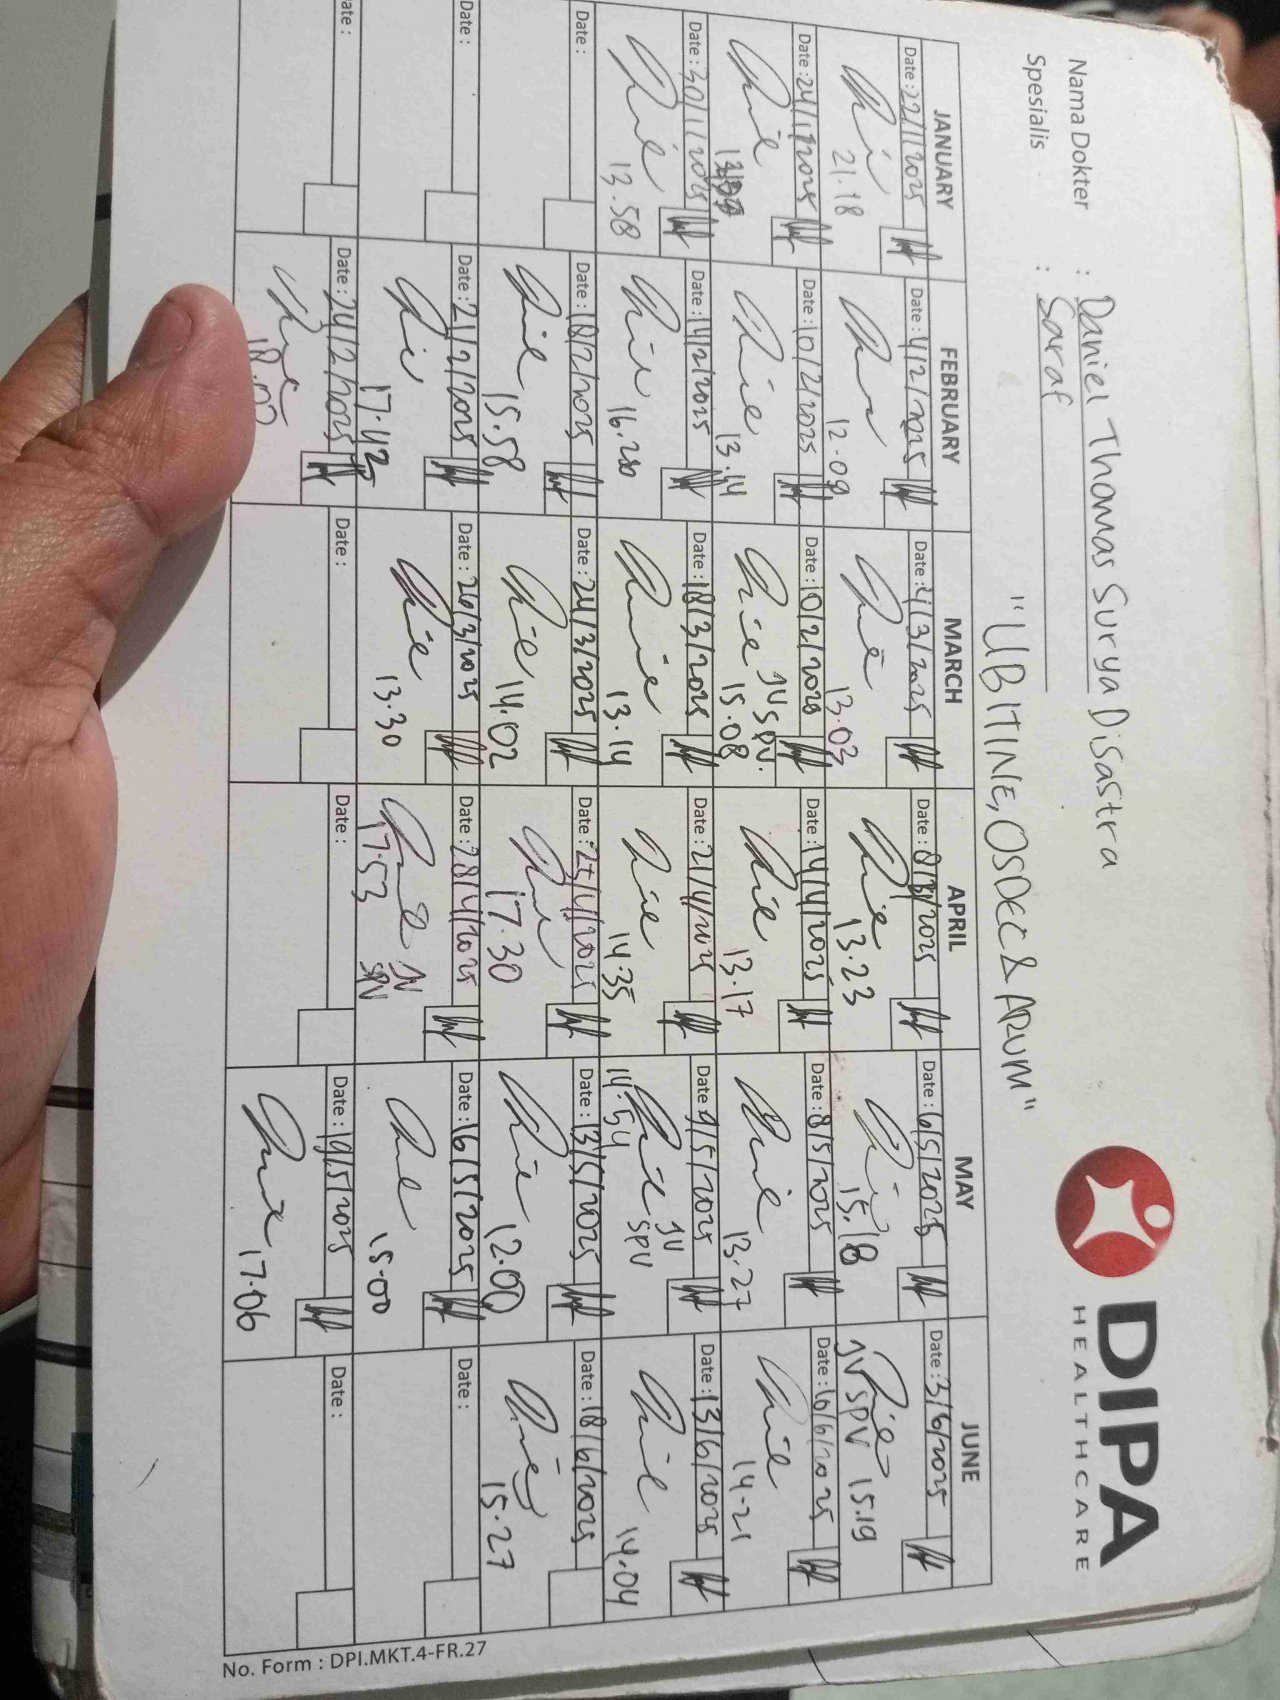 DIPA
HEALTHCARE
Nama Dokter : Daniel Thomas Surya Disastra
Spesialis : Saraf
"UBITINE, OSDEC & ARUM"
JANUARY FEBRUARY MARCH APRIL MAY JUNE
Date : 22/1/2025 Date : 4/2/2025 Date : 4/3/2025 Date : 8/3/2025 Date : 6/5/2025 Date : 3/6/2025
21.18 12.09 13.03 13.23 15.18 JV SPV 15.19
Date : 24/1/2025 Date : 10/2/2025 Date : 10/2/2025 Date : 14/4/2025 Date : 8/5/2025 Date : 10/6/2025
13.14 JV SPV. 15.08 13.17 13.27 14.21
Date : 30/1/2025 Date : 14/2/2025 Date : 18/3/2025 Date : 21/4/2025 Date : 9/5/2025 Date : 13/6/2025
13.58 13.14 14.35 14.54 JV SPV 14.04
Date : Date : 18/2/2025 Date : 24/3/2025 Date : 25/4/2025 Date : 13/5/2025 Date : 18/6/2025
15.58 14.02 17.30 12.00 15.27
Date : Date : 21/2/2025 Date : 26/3/2025 Date : 28/4/2025 Date : 16/5/2025 Date :
17.42 13.30 17.53 JV SPV 15.00
Date : Date : 24/2/2025 Date : Date : Date : 19/5/2025 Date :
18.00 17.06
No. Form : DPI.MKT.4-FR.27